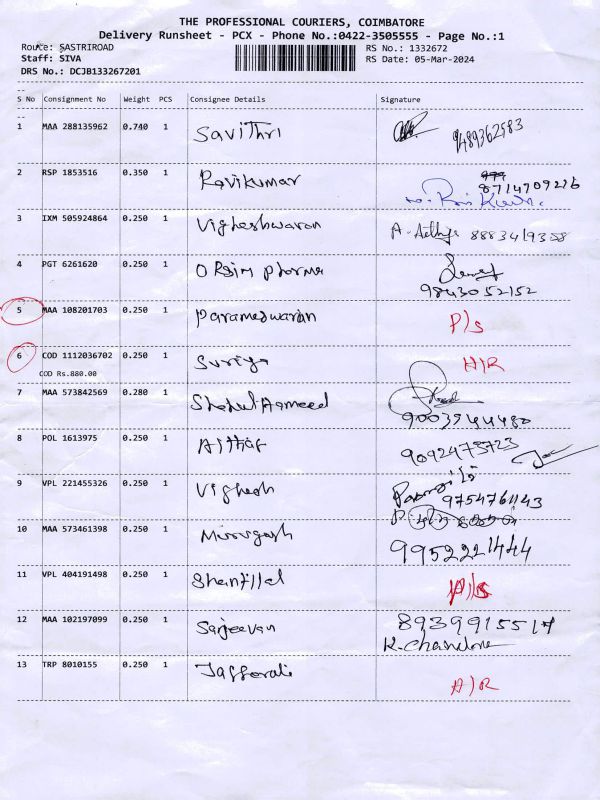 THE PROFESSIONAL COURIERS, COIMBATORE
Delivery Runsheet - PCX - Phone No.:0422-3505555 - Page No.:1
Route: SASTRIROAD
Staff: SIVA
DRS No.: DCJB133267201
RS No.: 1332672
RS Date: 05-Mar-2024
S No Consignment No Weight PCS Consignee Details Signature
1 MAA 288135962 0.740 1 Savithri 9489362583
2 RSP 1853516 0.350 1 Ravikumar 8714709216
3 IXM 505924864 0.250 1 Vigheshwaran
4 PGT 6261620 0.250 1 9843052152
5 MAA 108201703 0.250 1 Parameswaran P/s
6 COD 1112036702 0.250 1 Suriya A/R
COD Rs.880.00
7 MAA 573842569 0.280 1 9003544480
8 POL 1613975 0.250 1 Althaf 9092473723
9 VPL 221455326 0.250 1 Vighesh 9754761143
10 MAA 573461398 0.250 1 Murugash 9952221444
11 VPL 404191498 0.250 1 Shantilal P/s
12 MAA 102197099 0.250 1 Sarjeevan 8939915517
K. Chandone
13 TRP 8010155 0.250 1 Jafforali A/R